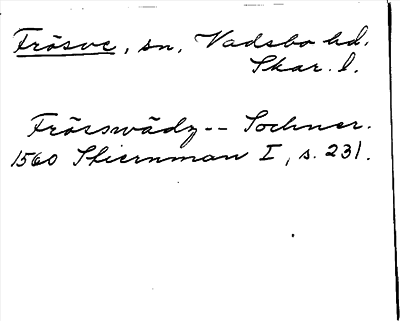 Fräsve, sn, Vadsbo hd.
Skar. l.
Frässwädz -- Sochner.
1560 Stiernman I, s. 231.